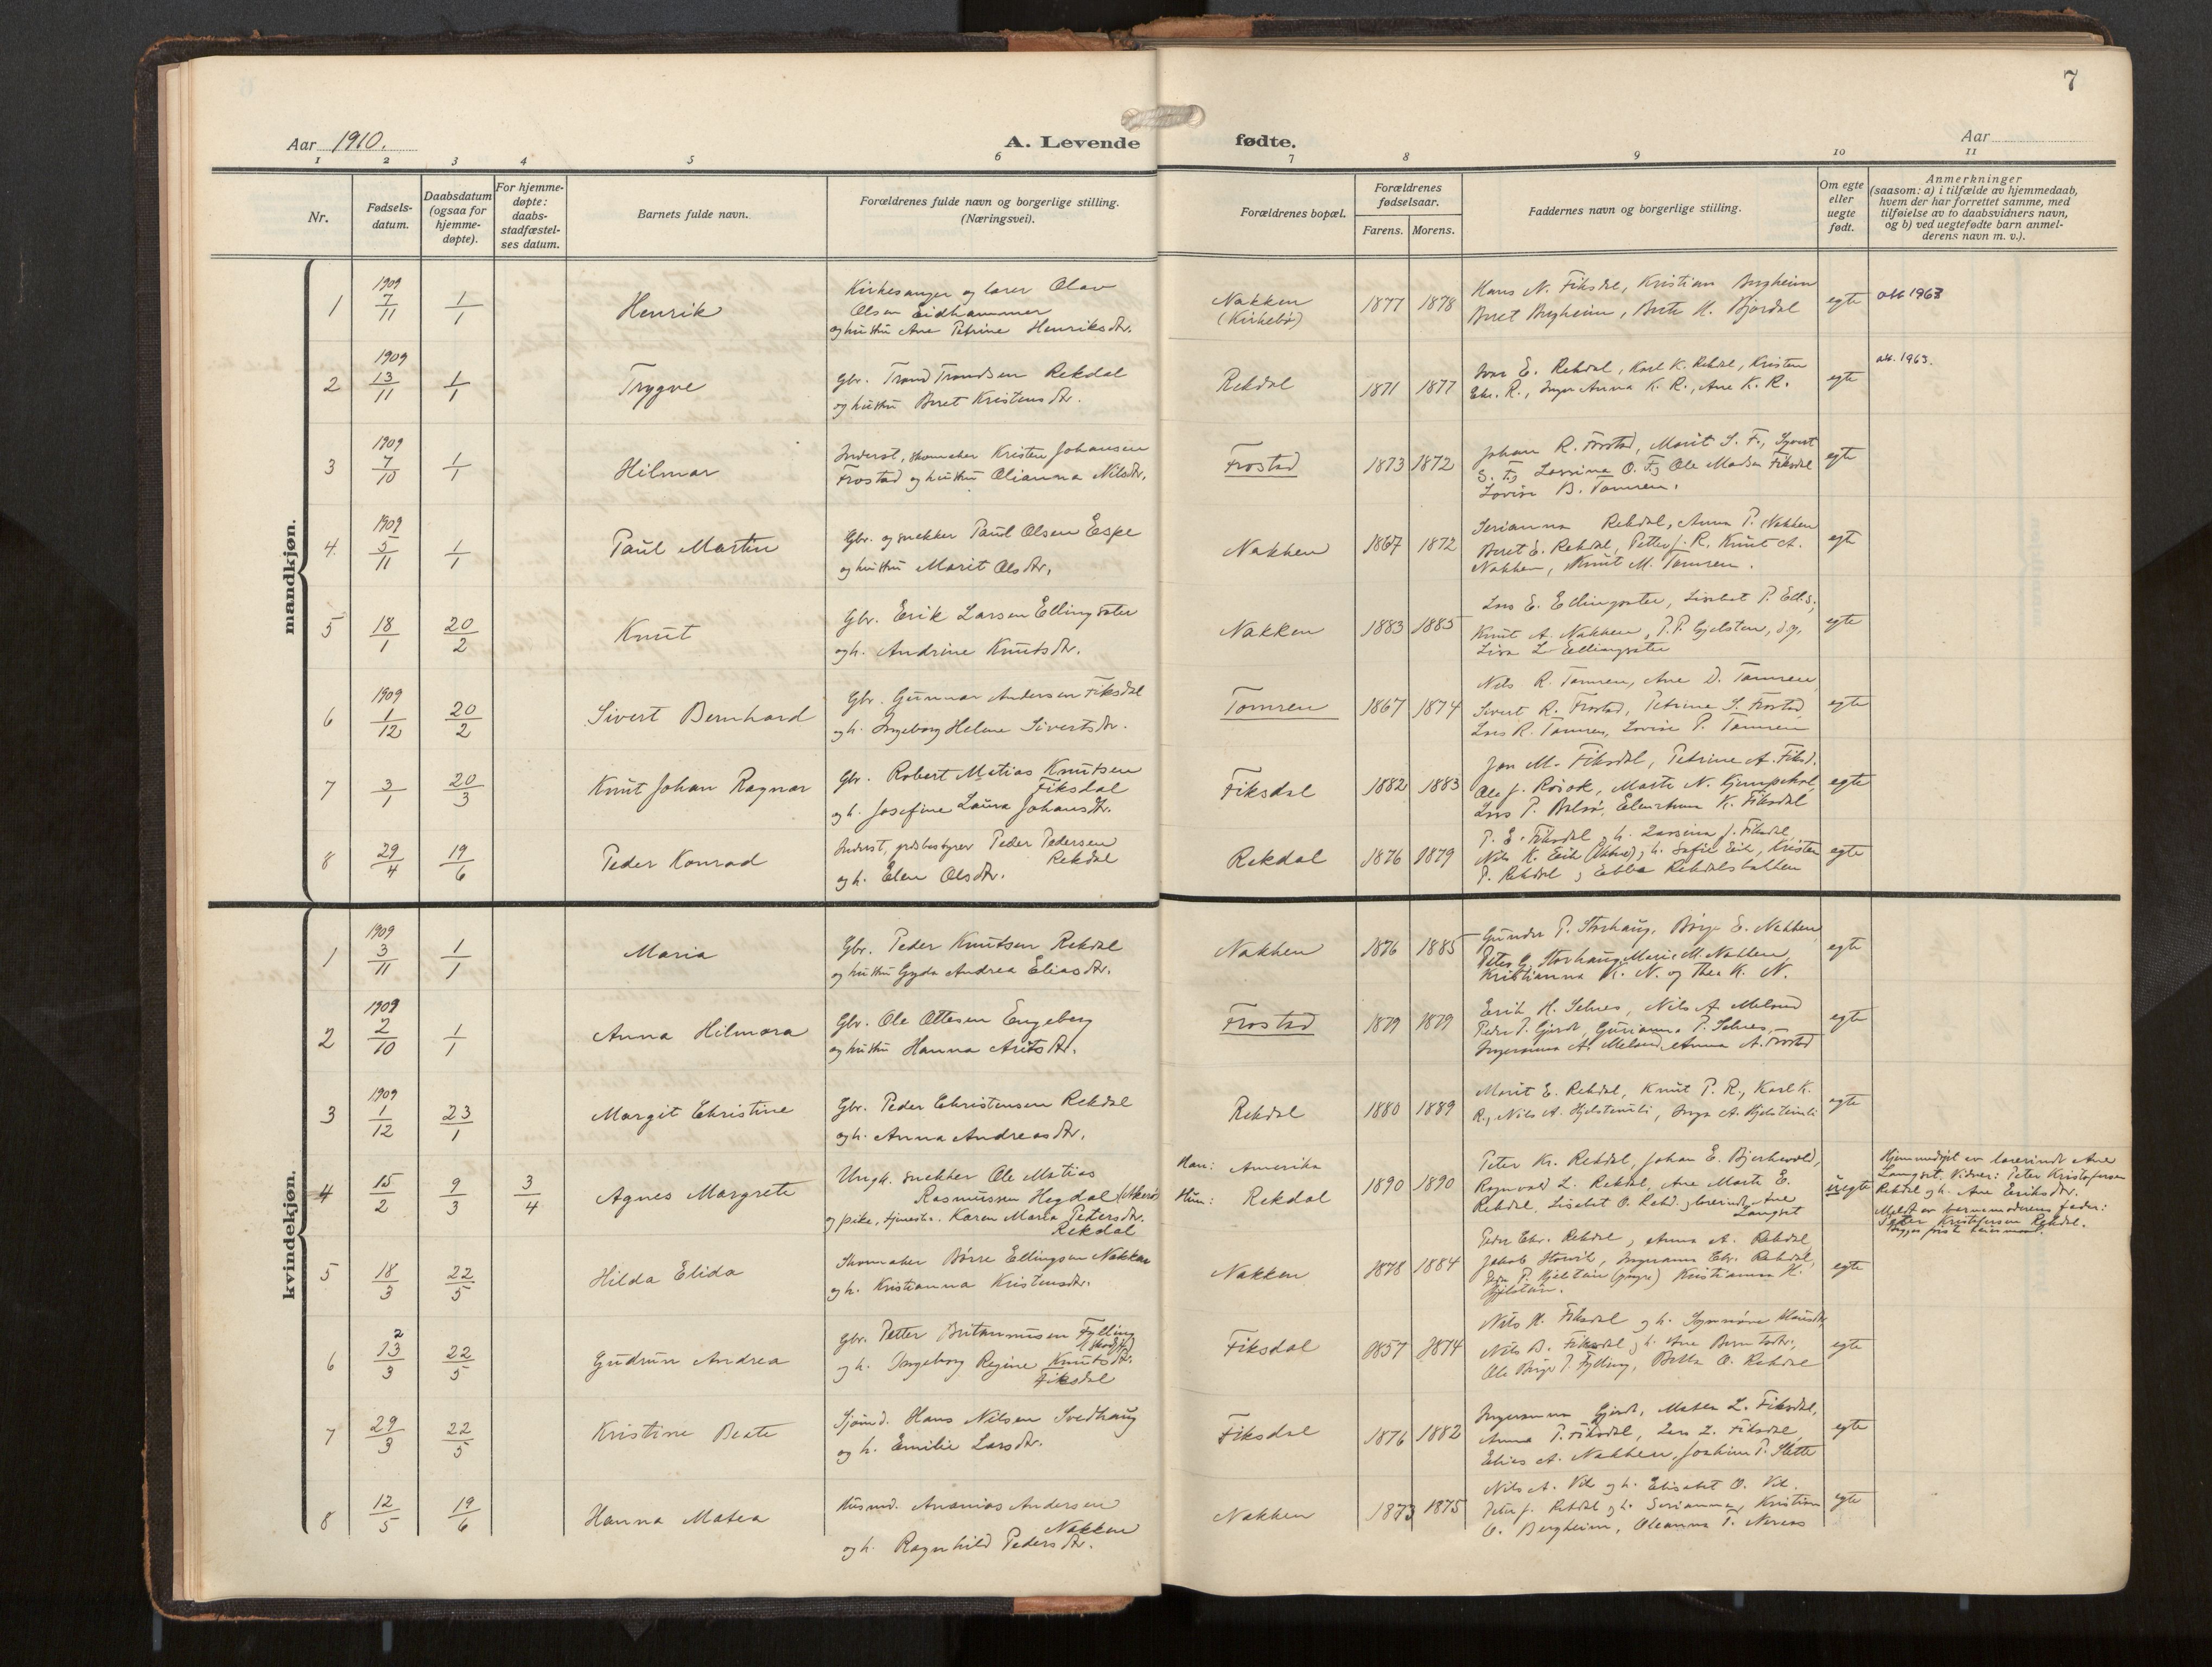 7
Aar 1910.
A. Levende
fødte.
Aar
1 2 3 4 5 6 7 8 9 10 11
Nr.
Fødsels-
datum.
Daabsdatum
(ogsaa for
hjemme-
døpte).
For hjemme-
døpte:
daabs-
stadfæstel-
ses datum.
Barnets fulde navn.
Forældrenes fulde navn og borgerlige stilling.
(Næringsvei).
Forældrenes bopæl.
Forældrenes
fødselsaar.
Farens. Morens.
Faddernes navn og borgerlige stilling.
Om egte
eller
uegte
født.
Anmerkninger
(saasom: a) i tilfælde av hjemmedaab,
hvem der har forrettet samme, med
tilføielse av to daabsvidners navn,
og b) ved uegtefødte barn anmel-
derens navn m. v.).
mandkjøn.
1
1909
7/11
1/1
Henrik
Kirkesanger og lærer Olav
Olsen Eidhammer
og hustru Ane Petrine Henriksdtr.
Nakken
(Kirkebø)
1877 1878
Hans N. Fiksdal, Kristian Bergheim
Beret Bergheim, Brit K. Bjordal
egte
att 1963
2
1909
13/11
1/1
Trygve
Gbr. Trond Trondsen Rekdal
og hustru Beret Kristensdtr.
Rekdal
1871 1877
Ivar E. Rekdal, Karl K. Rekdal, Kristen
Chr. R., Inger Anna K. R., Ane K. R.
egte
att. 1963.
3
1909
7/10
1/1
Hilmar
Inderst, skomaker Kristen Johansen
Frostad og hustru Olianna Nilsdtr.
Frostad
1873 1872
Johan R. Frostad, Marit S. F., Syvert
S. F., Lassina O. F., Ole Madsen Fiksdal
Lovise B. Tomren.
egte
4.
1909
5/11
1/1
Paul Martin
Gbr. og snekker Paul Olsen Espe
og hustru Marit Olsdtr.
Nakken
1867 1872
Serianna Rekdal, Anna P. Nakken
Beret E. Rekdal, Petter J. R., Knut A.
Nakken, Knut M. Tomren.
egte
5
18/1
20/2
Knut
Gbr. Erik Larsen Ellingsæter
og h. Andrine Knutsdtr.
Nakken
1883 1885
Lars E. Ellingsæter, Lisebet P. Ell.s.,
Knut A. Nakken, P. P. Gjelsten,
Lisa L. Ellingsæter
egte
6
1909
1/12
20/2
Sivert Bernhard
Gbr. Gunnar Andersen Fiksdal
og h. Ingeborg Helene Sivertsdtr.
Tomren
1867 1874
Nils R. Tomren, Ane D. Tomren
Sivert R. Frostad, Petrine S. Frostad
Lars R. Tomren, Lovise P. Tomren
egte
7
3/1
20/3
Knut Johan Ragnar
Gbr. Robert Matias Knutsen
Fiksdal
og h. Josefine Laura Johansdtr.
Fiksdal
1882 1883
Jon M. Fiksdal, Petrine A. Fiksd.
Ole J. Rösok, Marte N.
Lars P. Elen Anna K. Fiksdal
egte
8
29/4
19/6
Peder Konrad
Inderst, Peder Pedersen
Rekdal
og h. Elen Olsdtr.
Rekdal
1876 1879
P. E. Fiksdal, h. Lassina J. Fiksdal,
Nils K. Eik, h. Sofie Eik, Kristen
P. Rekdal, Ebba Rekdalsbakken
egte
kvindekjøn.
1
1909
3/11
1/1
Maria
Gbr. Peder Knutsen Rekdal
og hustru Gyda Andrea Eliasdtr.
Nakken
1876 1885
Gunder P. Storhaug, Börge E. Nakken
Peter G. Storhaug, Marie M. Nakken,
Kristianna K. N. og Thea K. N.
egte
2
1909
2/10
1/1
Anna Hilmara
Gbr. Ole Ottesen Engeberg
og hustru Hanna Aritsdtr.
Frostad
1879 1879
Erik H. Selnes, Nils A. Melsund
Peder P. Gjerde, Gurianna P. Selnes,
Ingeranna A. Melsund, Anna A. Frostad
egte
3
1909
1/12
23/1
Margit Christine
Gbr. Peder Christensen Rekdal
og h. Anna Andreasdtr.
Rekdal
1880 1889
Marit E. Rekdal, Knut P. R., Karl K.
R., Nils A. Hjelstenli, Inga A. Hjelstenli
egte
4
15/2
9/3
3/4
Agnes Margrete
Ungk. snekker Ole Matias
Rasmussen Hegdal (Akerø)
og pike, tjeneste. Karen Maria Petersdtr.
Rekdal
Han: Amerika
Hun: Rekdal
1890 1890
Peter Kr. Rekdal, Johan E. Bjerkevold,
Ragnvald L. Rekdal, Ane Marte E.
Rekdal, Lisebet O. Rekd., lærerinde Ane
Langset
uegte
Hjemmedøpt av lærerinde Ane
Langset. Vidner: Peter Kristofersen
Rekdal og h. Ane Eriksdtr.
Meldt av barnemoderens fader:
Peter Kristofersen Rekdal.
Begges første leiermaal.
5
18/3
22/5
Hilda Elida
Skomaker Börre Ellingsen Nakken
og h. Kristianna Kristensdtr.
Nakken
1878 1884
Peder Chr. Rekdal, Anna A. Rekdal,
Jakob Storvik, Ingeranna Chr. Rekdal,
Peder P. Hjelstein (yngre) Kristianna K.
Hjelstein.
egte
6
12/3
22/5
Gudrun Andrea
Gbr. Petter Britanusen Fylling
(Skodje)
og h. Ingeborg Regine Knutsdtr.
Fiksdal
Fiksdal
1857 1874
Nils K. Fiksdal og h. Synnöve Klausdtr
Nils B. Fiksdal, h. Ane Berntsdtr.,
Ole Börge P. Fylling, Berta O. Rekdal
egte
7
29/3
22/5
Kristine Beate
Sjömd. Hans Nilsen Svedhaug
og h. Emilie Larsdtr.
Fiksdal
1876 1882
Ingeranna Gjerde, Matea L. Fiksdal,
Anna P. Fiksdal, Lars L. Fiksdal,
Elias A. Nakken, Joakim P. Slette
egte
8
12/5
19/6
Hanna Matea
Husmd. Ananias Andersen
Nakken
og h. Ragnhild Pedersdtr.
Nakken
1873 1875
Nils A. Vik og h. Elisabet O. Vik.
Peter J. Rekdal og h. Serianna, Kristian
O. Bergheim, Oleanna T. Nereas
egte